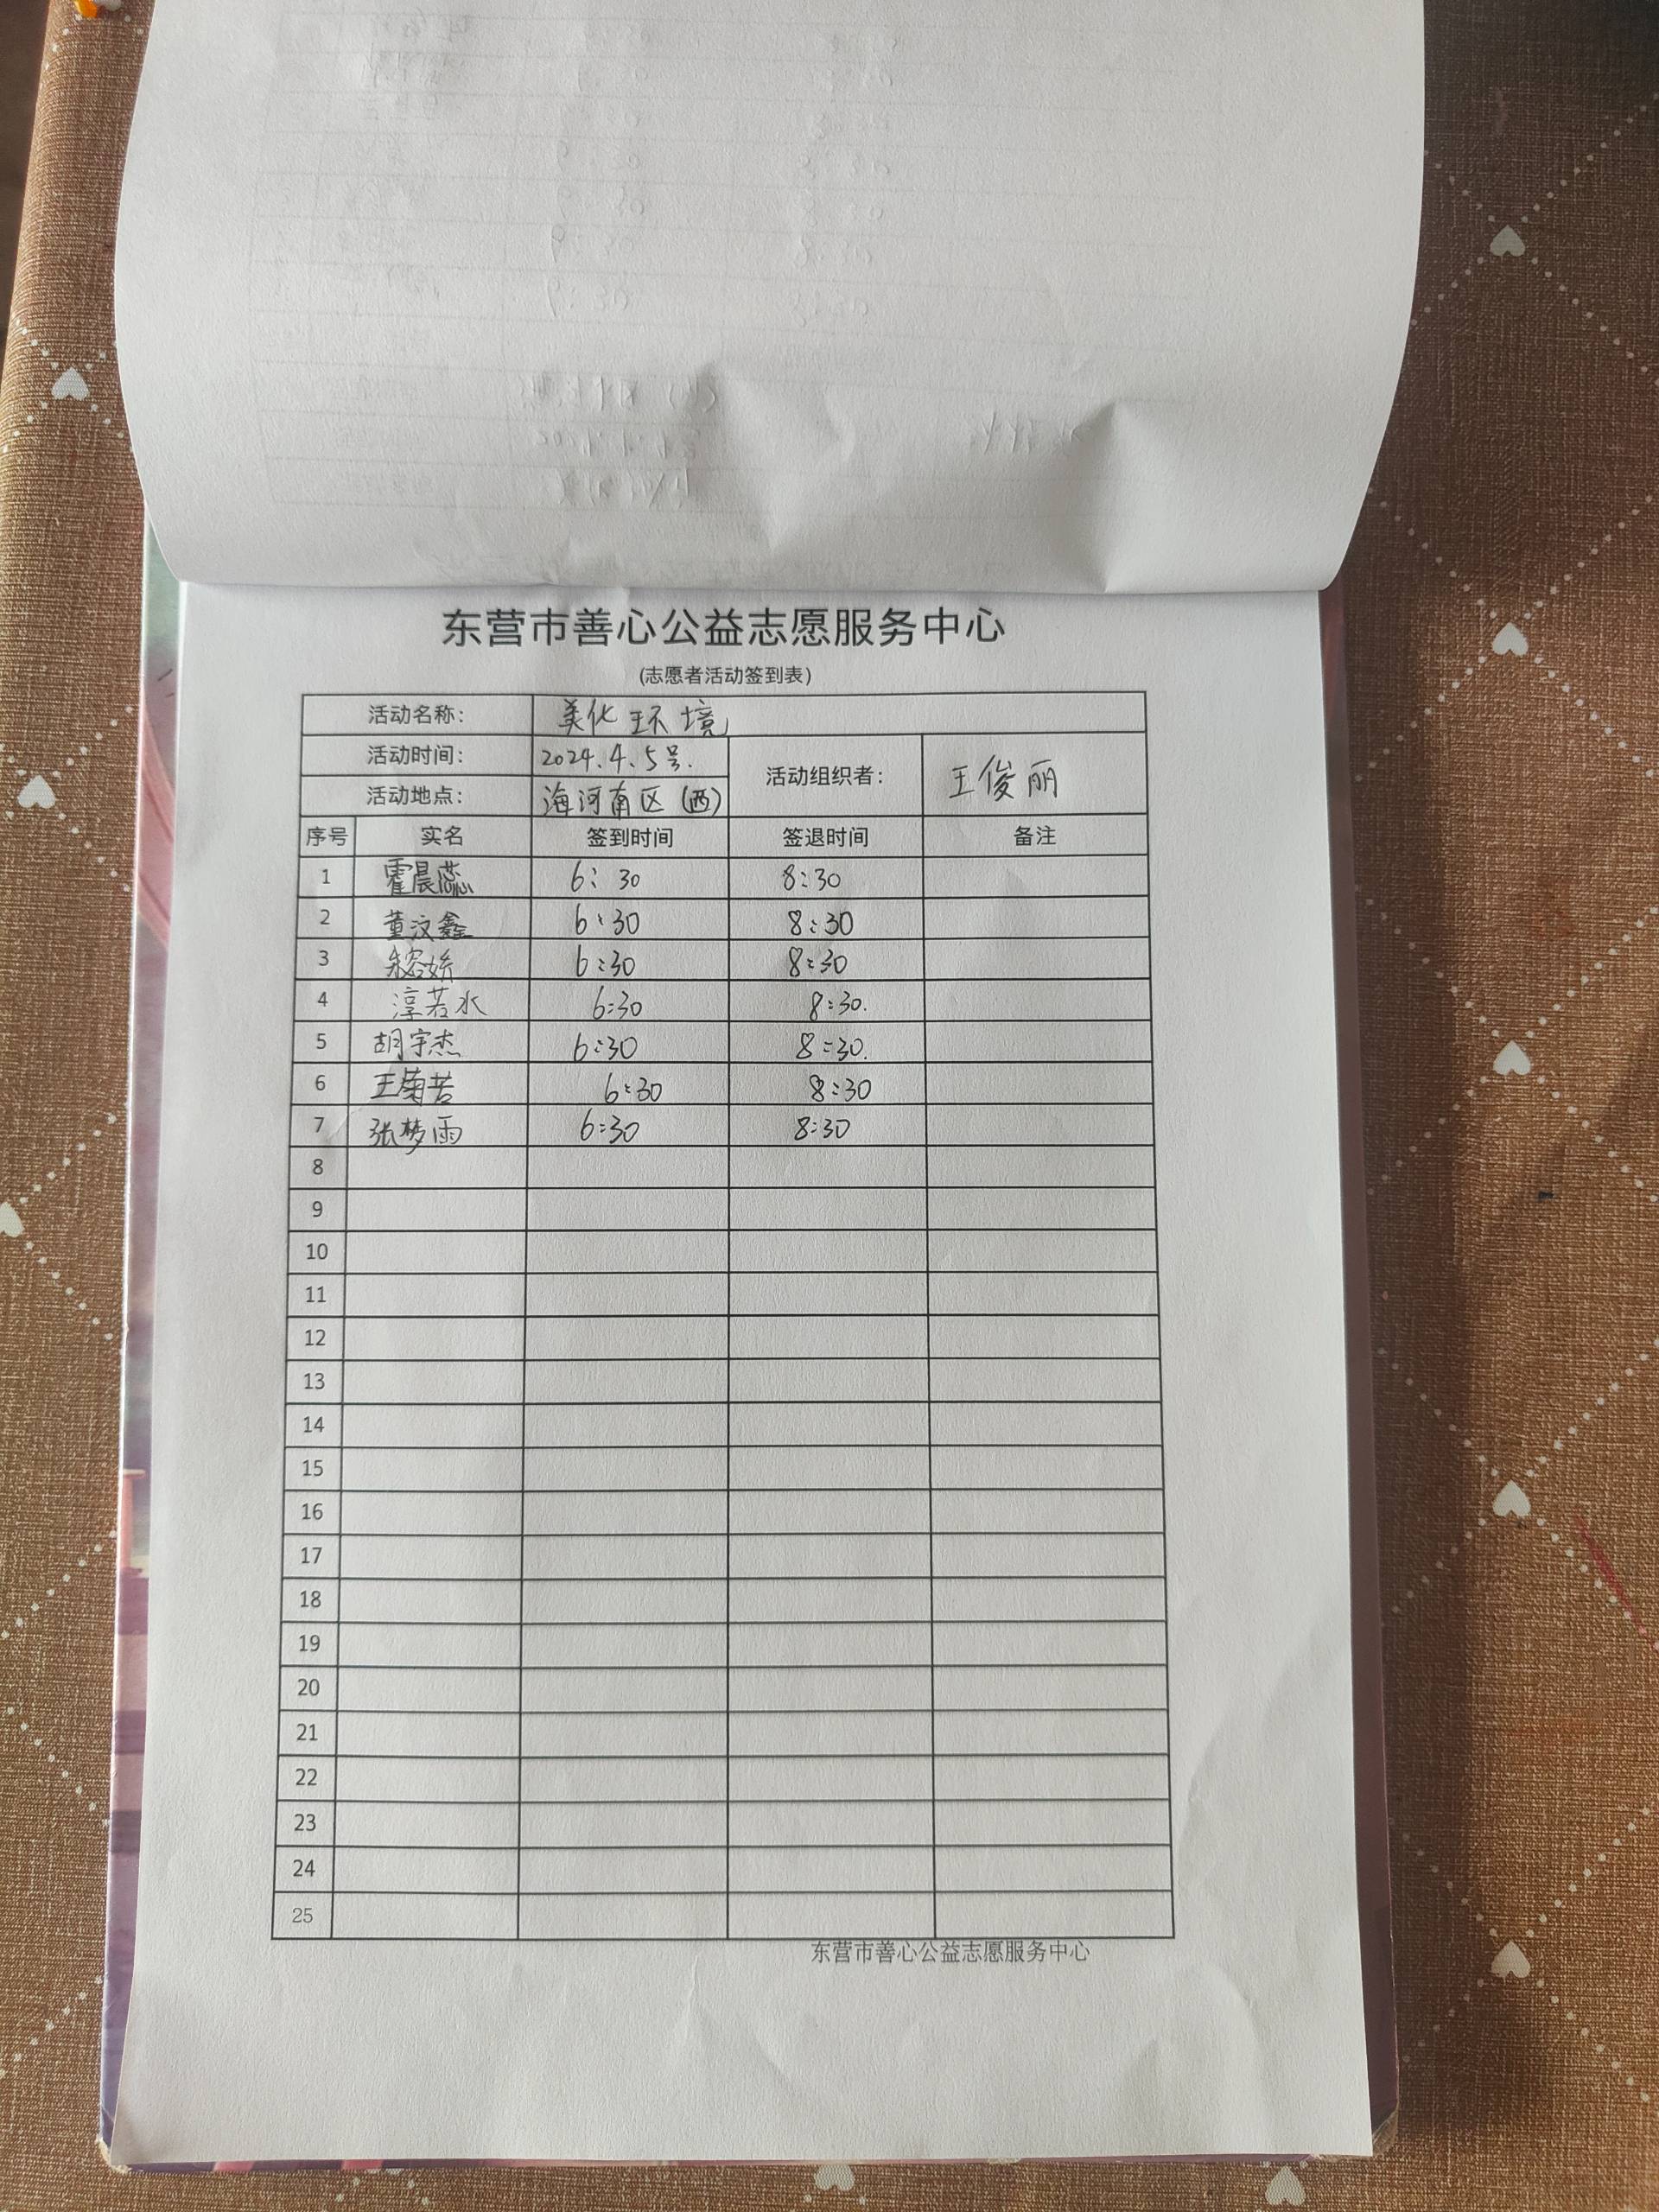 东营市善心公益志愿服务中心
(志愿者活动签到表)
活动名称: 美化环境
活动时间: 2024.4.5号.
活动组织者: 王俊丽
活动地点: 海河南区(西)
序号 实名 签到时间 签退时间 备注
1 霍晨蕊 6:30 8:30
2 董汶鑫 6:30 8:30
3 6:30 8:30
4 淳若水 6:30 8:30.
5 胡宇杰 6:30 8:30.
6 王菊苦 6:30 8:30
7 张梦雨 6:30 8:30
8
9
10
11
12
13
14
15
16
17
18
19
20
21
22
23
24
25
东营市善心公益志愿服务中心